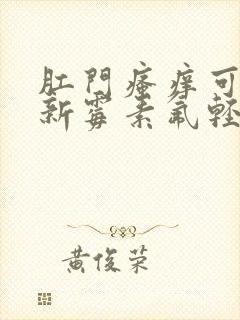 肛門瘙癢可
新霉素氟輕
黃俊榮